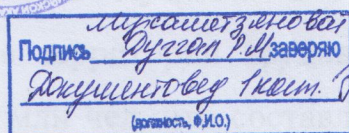 Мухаметзяновой
Подпись Дуггал Р.М заверяю
Документовед 1 кат.
(должность, Ф.И.О.)